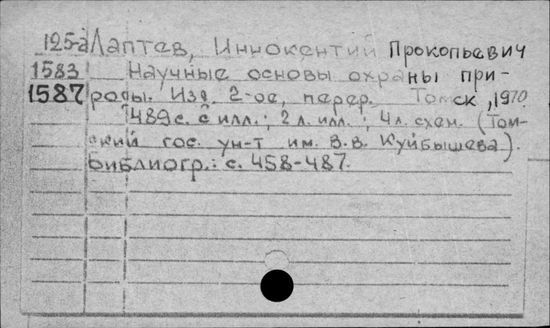 125-а Лаптев, Иннокентий Прокопьевич
1583 Научные основы охраны при-
1587 роды. Изд. 2-ое, перер. Томск, 1970
489с. с илл.; 2 л. илл.; 4 л. схем. (Том-
ский гос. ун-т им. В.В. Куйбышева).
Библиогр.: с. 458-487.